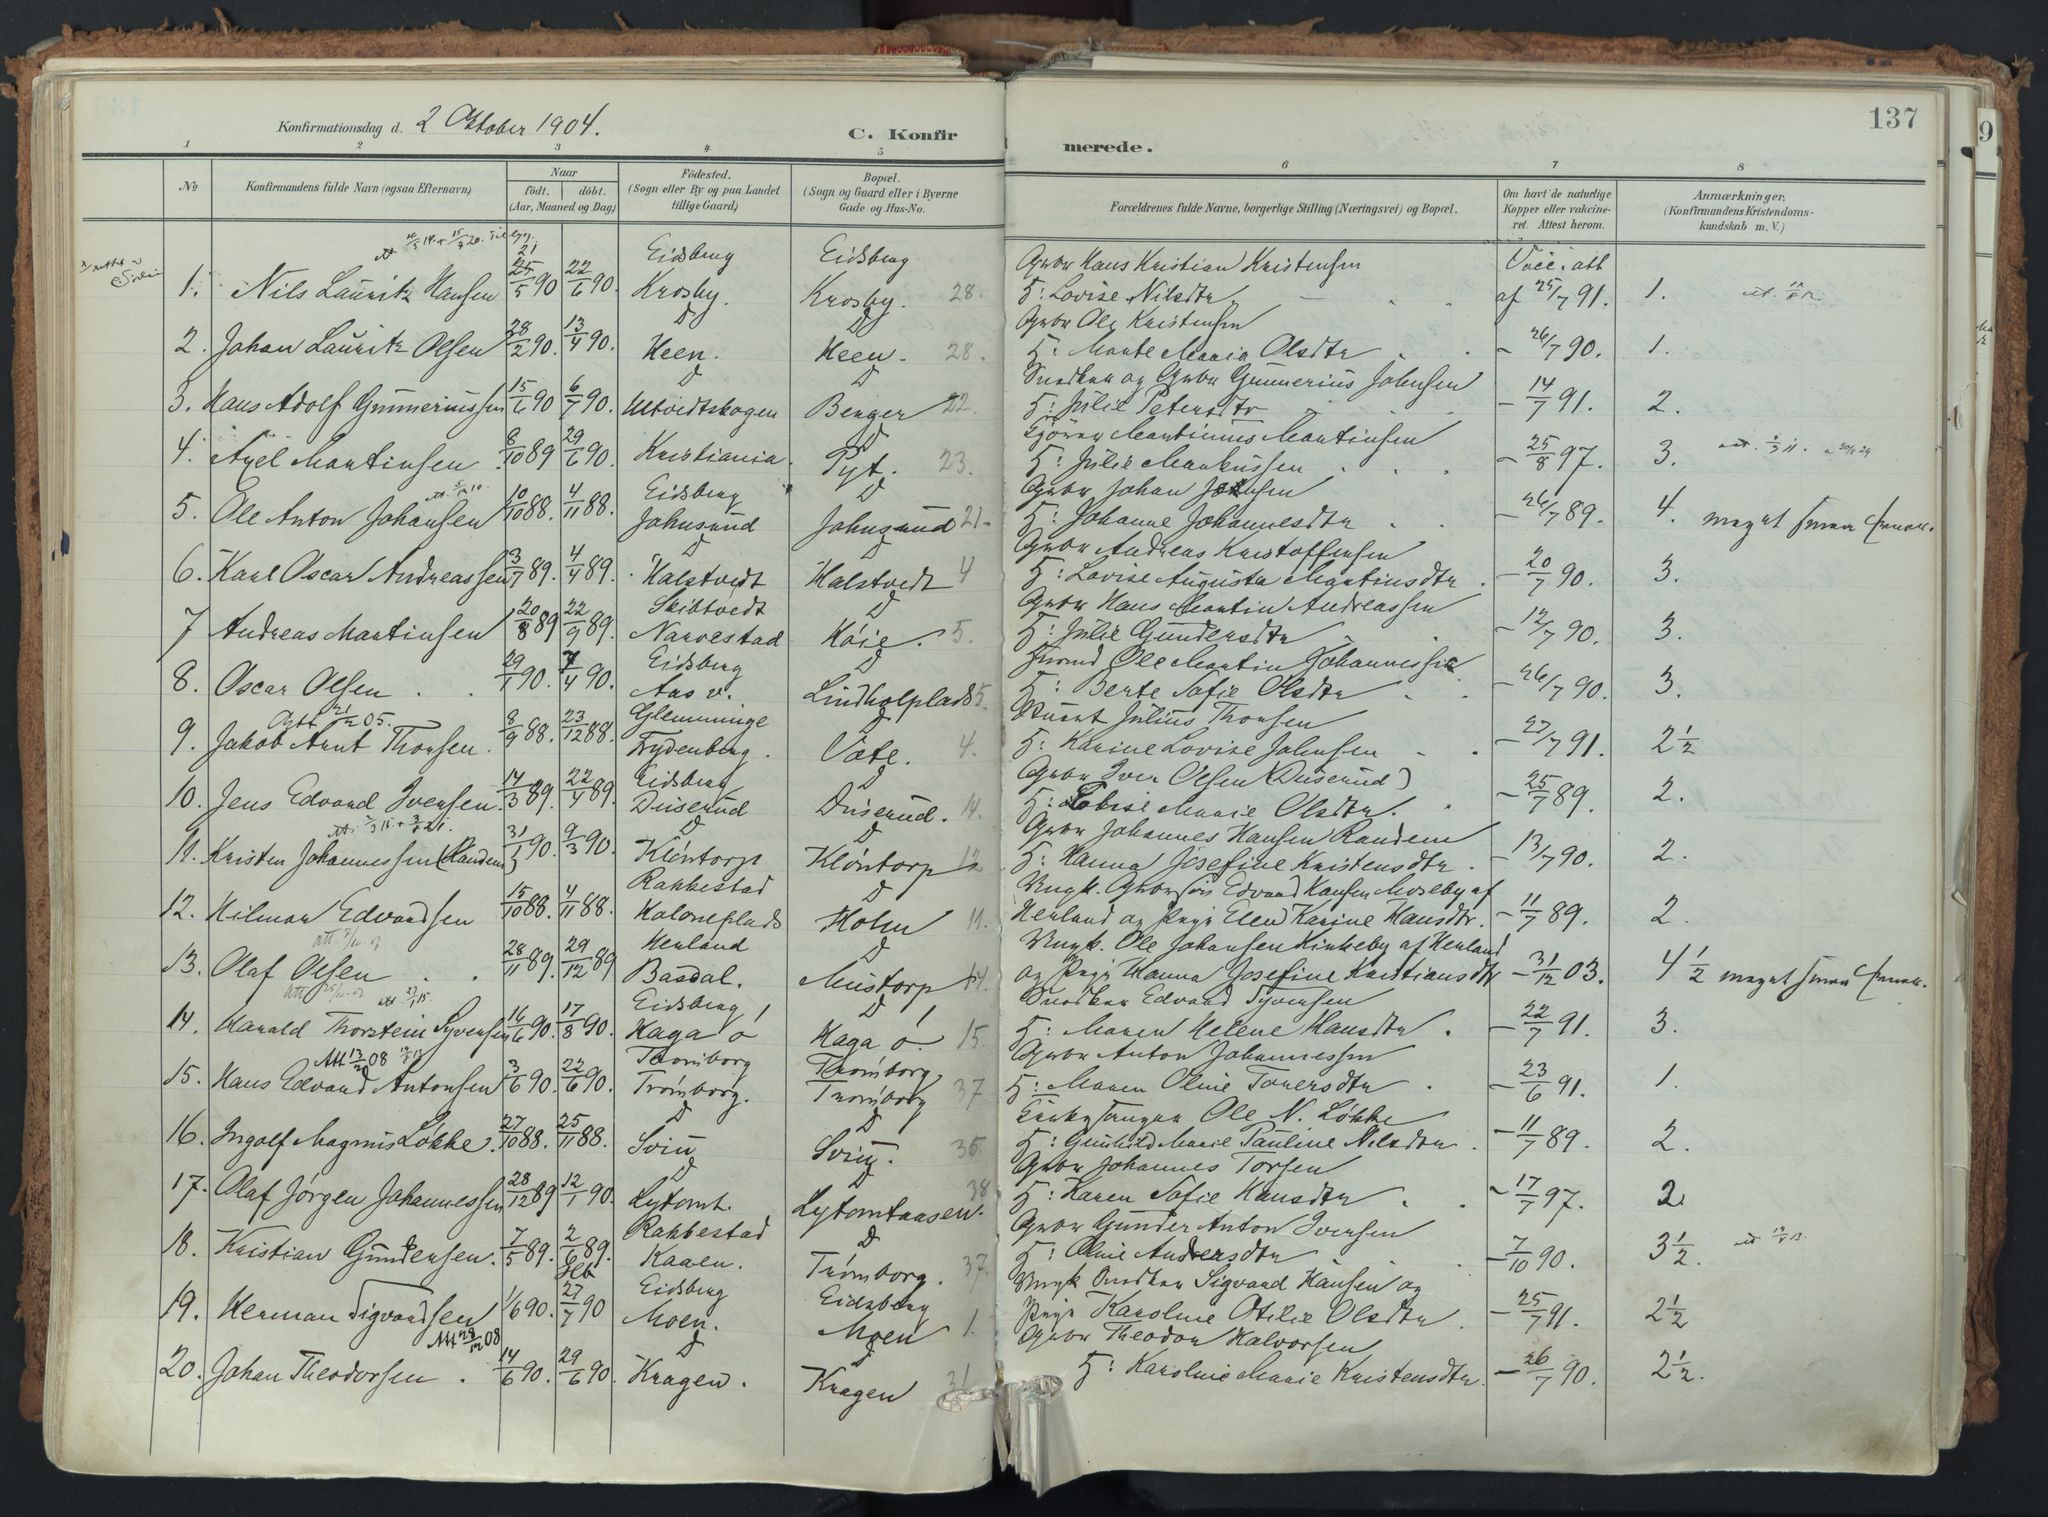 137
Konfirmationsdag d. 2 Oktober 1904.
C. Konfirmerede.
1 2 3 4 5 6 7 8
No
Konfirmandens fulde Navn (ogsaa Efternavn)
Naar
födt. döbt.
(Aar, Maaned og Dag)
Födested.
(Sogn eller By og paa Landet
tillige Gaard)
Bopæl.
(Sogn og Gaard eller i Byerne
Gade og Hus-No.
Forældrenes fulde Navne, borgerlige Stilling (Næringsvei) og Bopæl.
Om havt de naturlige
Kopper eller vakcine-
ret. Attest herom.
Anmærkninger,
(Konfirmandens Kristendoms-
kundskab m. V.)
Eidsberg Eidsberg Gbr Hans Kristian Kristensen Vacc. att
1. Nils Lauritz Hansen 25/5 90 22/6 90. Krosby. Krosby. 28. H: Lovise Nilsdtr af 25/7 91. 1.
D D Gbr Ole Kristensen
2. Johan Lauritz Olsen 28/2 90. 13/4 90. Heen. Heen. 28. H: Marte Maria Olsdtr - 26/7 90. 1.
D D Snedker og Gbr Gunnerius Johnsen
3. Hans Adolf Gunneriussen 15/6 90 6/7 90. Ultvedtskogen Berger 22. H: Julie Petersdtr - 14/7 91. 2.
D Martinius Martinsen
4. Axel Martinsen. 8/10 89 29/6 90. Kristiania. Pyt. 23. H: Julie Markussen - 25/8 97. 3.
Eidsberg D Gbr Johan Jensen
5. Ole Anton Johansen 10/10 88. 4/11 88. Johnsrud Johnsrud 21. H: Johanne Johannesdtr - 26/7 89. 4. meget smaa
D D Gbr Andreas Kristoffersen
6. Karl Oscar Andreassen 3/7 89. 4/4 89. Halstvedt Halstvedt 4 H: Lovise Augusta Martinsdtr. - 20/7 90. 3.
Skibtvedt D Gbr Hans Martin Andreassen
7 Andreas Martinsen 20/8 89 22/9 89. Narvestad Höie. 5. H: Julie Gundersdtr - 12/7 90. 3.
Eidsberg D Ole Martin Johannessen
8. Oscar Olsen 29/1 90. 7/4 90. Aas v. Lindholplads 5. H: Berte Sofie Olsdtr - 26/7 90. 3.
Att 21/2 05. Glemminge D Julius Thorsen
9. Jakob Arnt Thorsen. 8/9 88. 23/12 88. Frydenberg. Vate. 4. H: Karine Lovise Johnsen - 27/7 91. 2 1/2
Eidsberg D Gbr Iver Olsen (Duserud)
10. Jens Edvard Iversen. 14/3 89. 22/4 89. Duserud Duserud. 14. H: Lovise Marie Olsdtr. - 25/7 89. 2.
D D Gbr Johannes Hansen Randem
11. Kristen Johannessen (Randem) 31/1 90. 9/3 90. Klöntorp Klöntorp 12 H: Hanna Josefine Kristensdtr. - 13/7 90. 2.
Rakkestad D Ungk. Edvard Hansen Moseby af
12. Hilmar Edvardsen 15/10 88. 4/11 88. Holoneplads Holm 11. Henland og Pige Elen Karine Hansdtr. - 11/7 89. 2.
Henland D Ungk. Ole Johansen Kirkeby af Henland
13. Olaf Olsen 28/11 89. 29/12 89 Basdal. Mustorp 14. og Pige Hanna Josefine Kristiansdtr - 31/12 03. 4 1/2 meget smaa
Eidsberg D Snedker Edvard Syversen
14. Harald Thorstein Syversen 16/6 90. 17/8 90. Haga ö Haga ö. 15. H: Maren Helene Hansdtr. - 22/7 91. 3.
Att 13/2 08 Trömborg Trömborg Gbr Anton Johannessen
15. Hans Edvard Antonsen 3/6 90. 22/6 90. Trömborg. Trömborg 37 H: Maren Oline Toversdtr. - 23/6 91. 1.
D D Kirkesanger Ole N. Løkke
16. Ingolf Magnus Løkke. 27/10 88. 25/11 88. Svin Svin. 35. H: Gunhild Marie Pauline Nilsdtr. - 11/7 89. 2.
D D Gbr Johannes Torsen
17. Olaf Jørgen Johannessen 28/12 89 12/1 90. Lytomt. Lytomtaasen. 38. H: Karen Sofie Hansdtr. - 17/7 97. 2
Rakkestad D Gbr Gunder Anton Iversen
18. Kristian Gundersen. 7/5 89. 2/6 89. Kaaen. Trömborg. 37. H: Oline Andersdtr - 7/10 90. 3 1/2.
Eidsberg Eidsberg Ungk Snedker Sigvard Hansen og
19. Herman Sigvardsen 1/6 90. 27/7 90 Moen. Moen 1. Pige Karoline Otilie Olsdtr. - 25/7 91. 2 1/2
Att 28/12 08 D D Gbr Theodor Halvorsen
20. Johan Theodorsen. 14/6 90. 29/6 90. Kragen. Kragen 31. H: Karoline Marie Kristensdtr. - 26/7 90. 2 1/2.